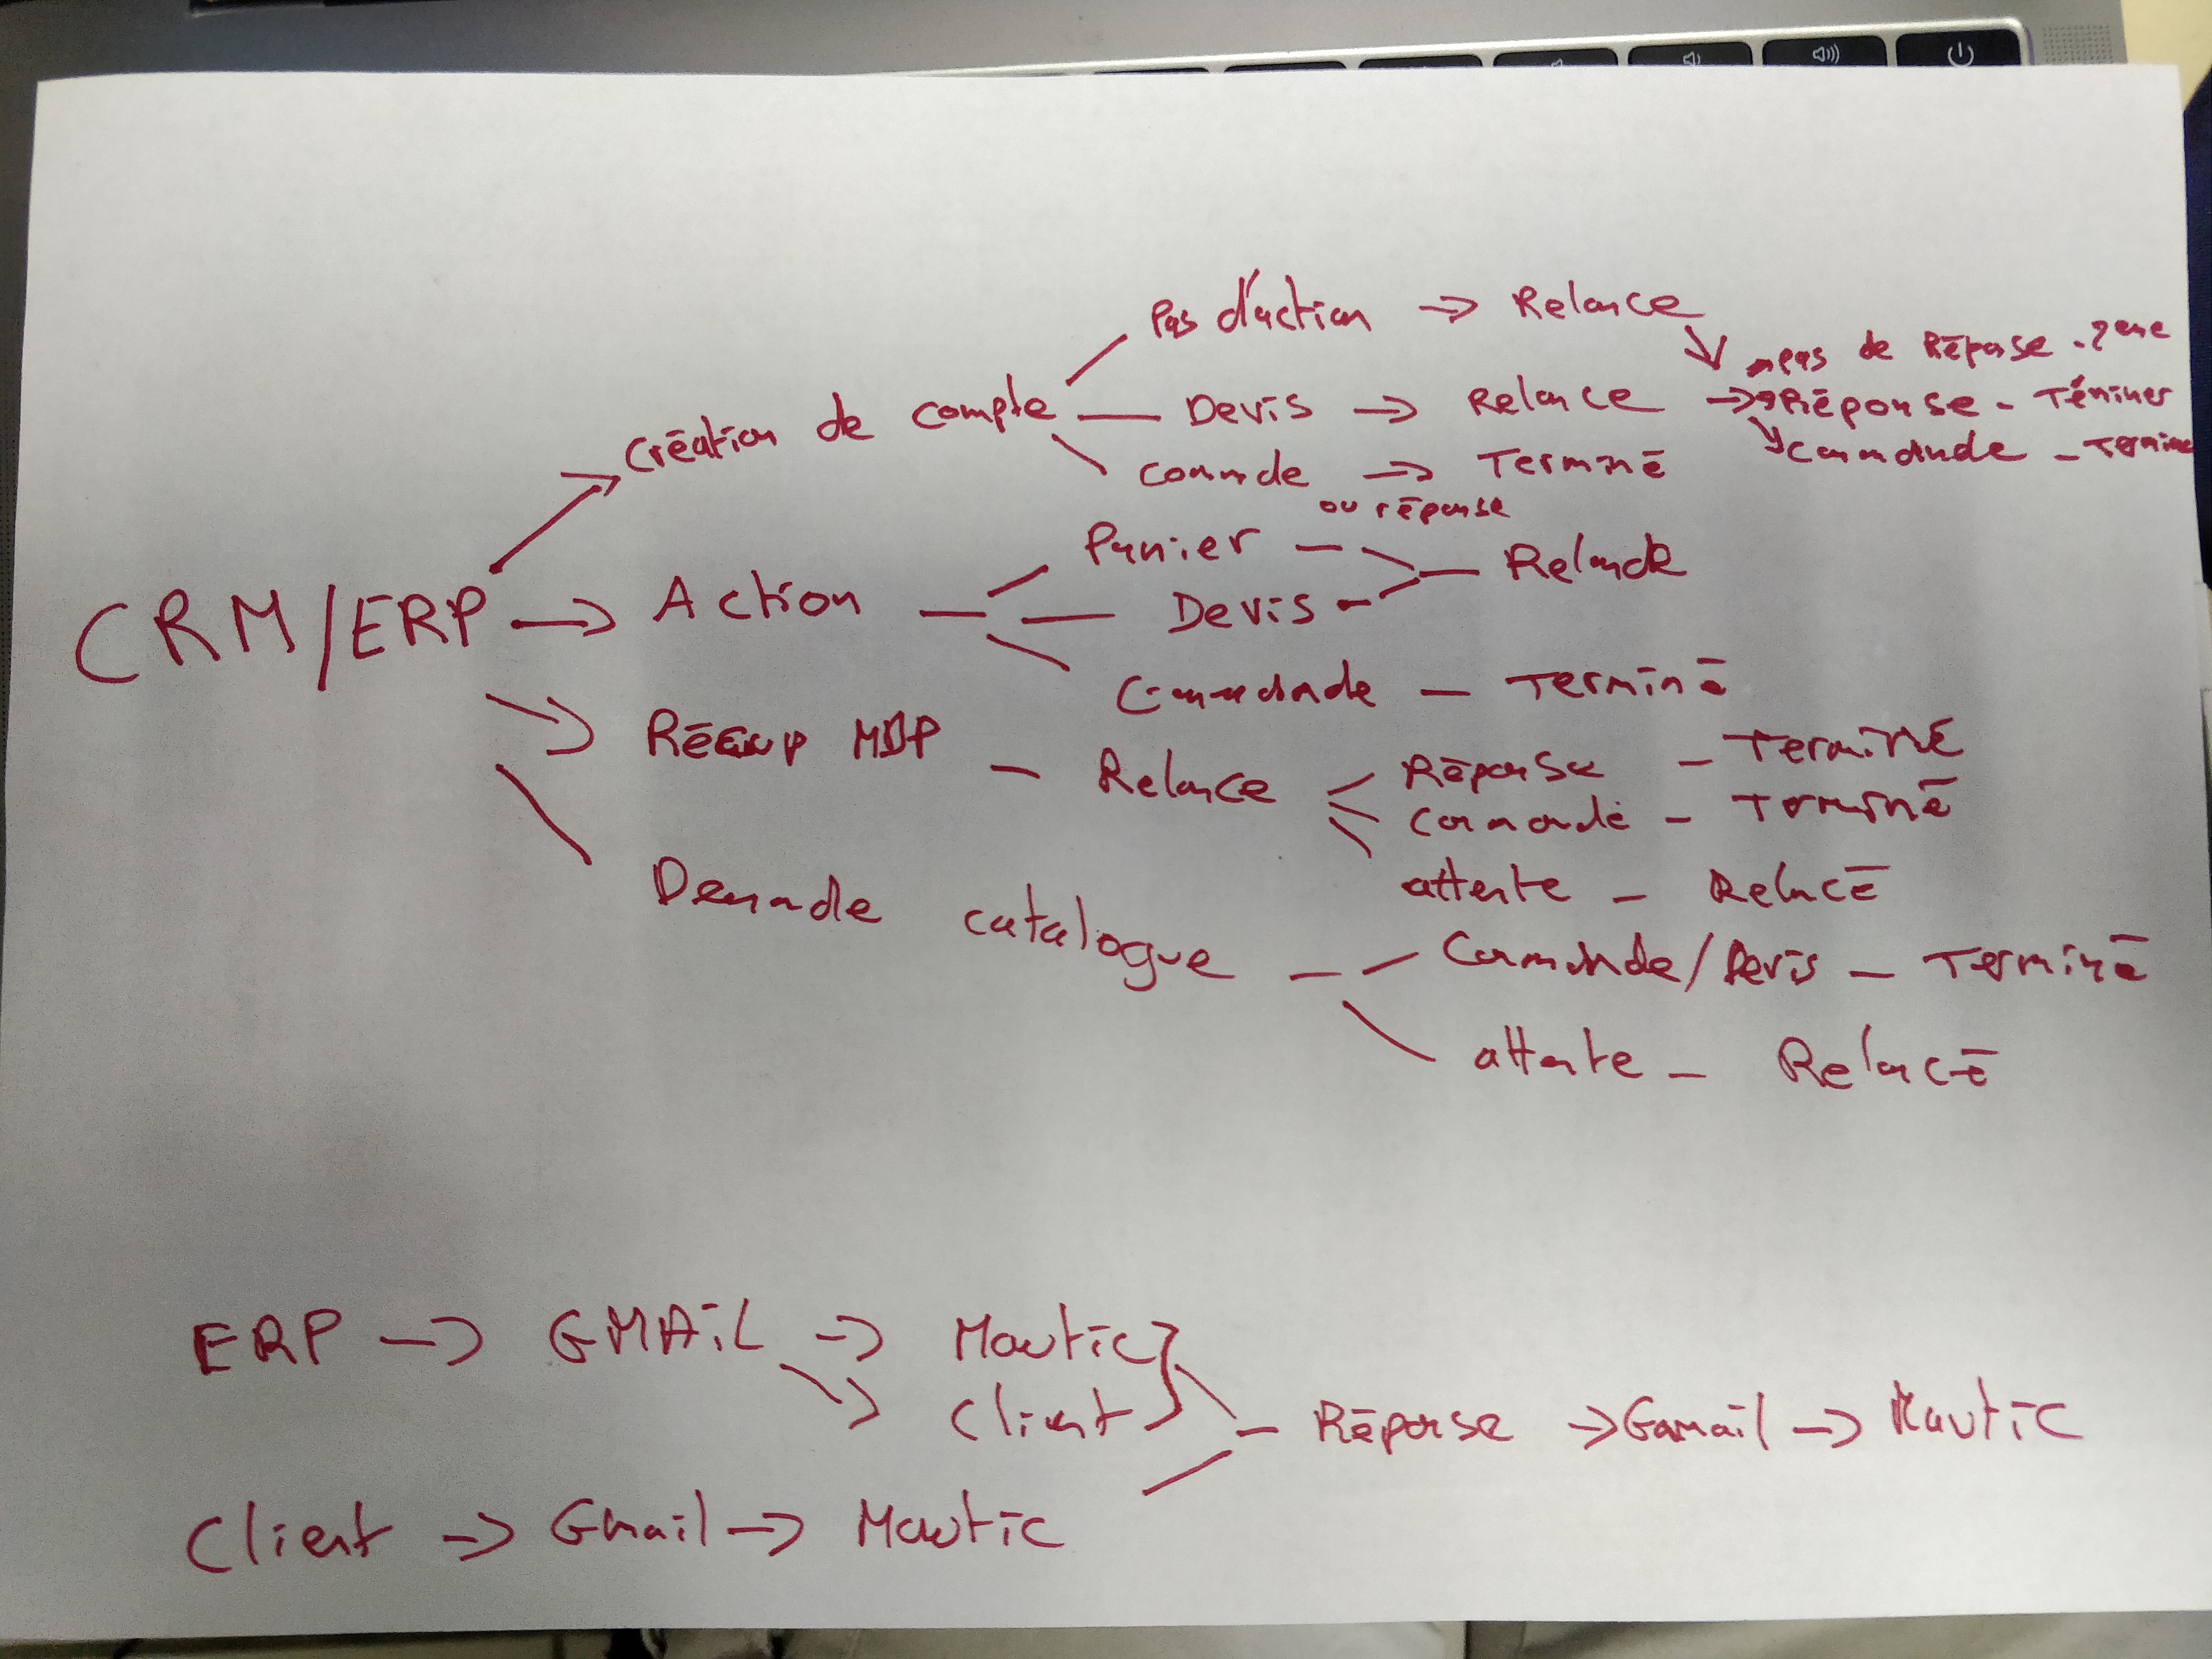 Pas d'action → Relance
→ pas de Réponse - 2eme
Création de compte — Devis → Relance → Réponse - Téminer
Commande - Termine
commde → Terminé
ou réponse
Panier — Relance
CRM/ERP → Action — Devis -
Commande — Terminé
Récup MDP — Relance
Réponse — Terminé
Commande — Terminé
attente — Relancé
Demande catalogue — Commande/Devis — Terminé
attente — Relancé
ERP → GMAIL → Mautic
Client
— Réponse → Gmail → Mautic
Client → Gmail → Mautic